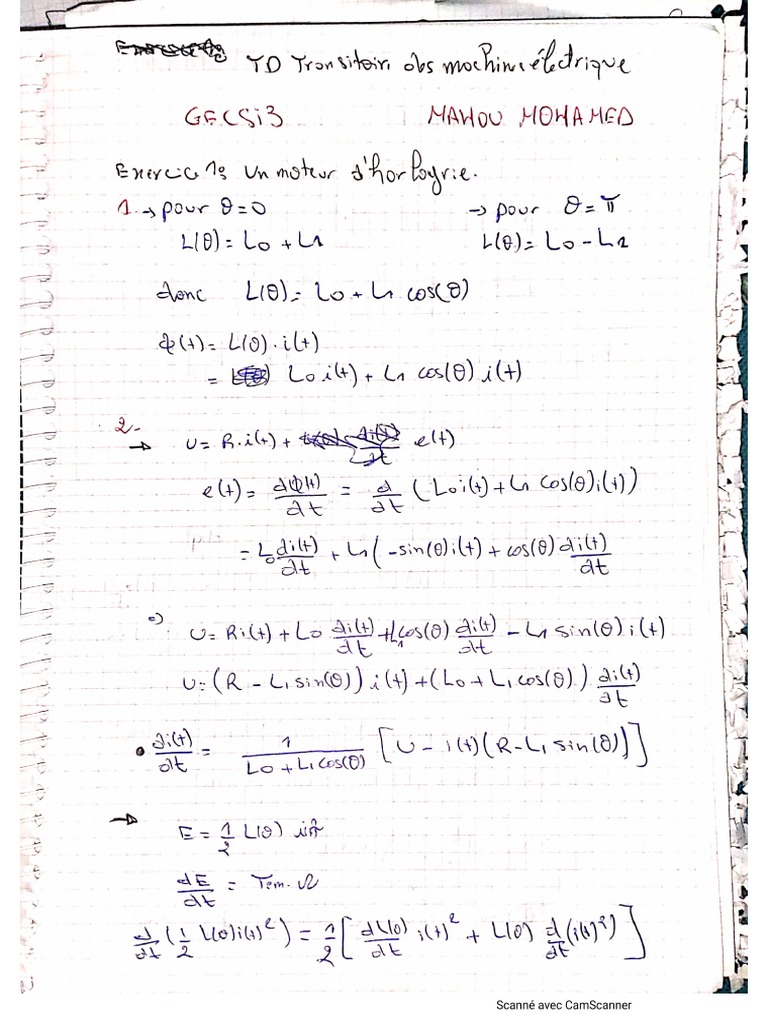 TD Transitoire des machine électrique
GECSi3 MAHOU MOHAMED
Exercice 1: Un moteur d'horlogrie.
1. → pour θ=0 → pour θ=π
L(θ)= L0 + L1 L(θ)= L0 - L1
donc L(θ)= L0 + L1 cos(θ)
ϕ(t)= L(θ)·i(t)
= L0 i(t) + L1 cos(θ) i(t)
2-
→ U= R.i(t) + e(t)
e(t)= dϕ(t)/dt = d/dt (L0 i(t) + L1 cos(θ) i(t))
= L0 di(t)/dt + L1 (-sin(θ) i(t) + cos(θ) di(t)/dt
U= Ri(t) + L0 di(t)/dt + L1 cos(θ) di(t)/dt - L1 sin(θ) i(t)
U= (R - L1 sin(θ)) i(t) + (L0 + L1 cos(θ)) di(t)/dt
• di(t)/dt = 1/(L0 + L1 cos(θ)) [U - i(t) (R - L1 sin(θ))]
→ E = 1/2 L(θ)
dE/dt = Tem. Ω
d/dt (1/2 L(θ) i(t)²) = 1/2 [dL(θ)/dt i(t)² + L(θ) d/dt (i(t)²)]
Scanné avec CamScanner